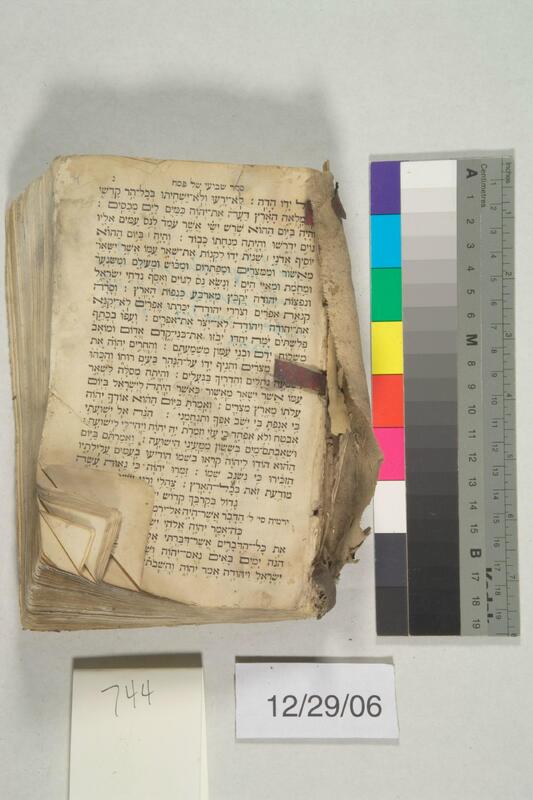 סדר שביעי של פסח
ידו הדה: לא־ירעו ולא־ישחיתו בכל־הר קדשי
מלאה הארץ דעה את־יהוה כמים לים מכסים:
היה ביום ההוא שרש ישי אשר עמד לנס עמים אליו
גוים ידרשו והיתה מנחתו כבוד: והיה ביום ההוא
יוסיף אדני שנית ידו לקנות את־שאר עמו אשר ישאר
מאשור וממצרים ומפתרוס ומכוש ומעילם ומשנער
ומחמת ומאיי הים: ונשא נס לגוים ואסף נדחי ישראל
ונפצות יהודה יקבץ מארבע כנפות הארץ: וסרה
קנאת אפרים וצררי יהודה יכרתו אפרים לא־יקנא
את־יהודה ויהודה לא־יצר את־אפרים: ועפו בכתף
פלשתים ימה יחדו יבזו את־בני־קדם אדום ומואב
משלוח ידם ובני עמון משמעתם: והחרים יהוה את
מצרים והניף ידו על־הנהר בעים רוחו והכהו
נחלים והדריך בנעלים: והיתה מסלה לשאר
עמו אשר ישאר מאשור כאשר היתה לישראל ביום
עלתו מארץ מצרים: ואמרת ביום ההוא אודך יהוה
כי אנפת בי ישב אפך ותנחמני: הנה אל ישועתי
אבטח ולא אפחד כי עזי וזמרת יה יהוה ויהי־לי לישועה:
ושאבתם־מים בששון ממעיני הישועה: ואמרתם ביום
ההוא הודו ליהוה קראו בשמו הודיעו בעמים עלילתיו
הזכירו כי נשגב שמו: זמרו יהוה כי גאות עשה
מודעת זאת בכל־הארץ: צהלי ורני
גדול בקרבך קדוש
ירמיה סי׳ ל׳ הדבר אשר־היה אל־ירמ
כה־אמר יהוה אלהי יש
את כל־הדברים אשר־דברתי
הנה ימים באים נאם־יהוה וש
ישראל ויהודה אמר יהוה והשבתי
Inches
Centimetres
A 1 2 3 4 5 6 M 8 9 10 11 12 13 14 15 B 17 18 19
744
12/29/06